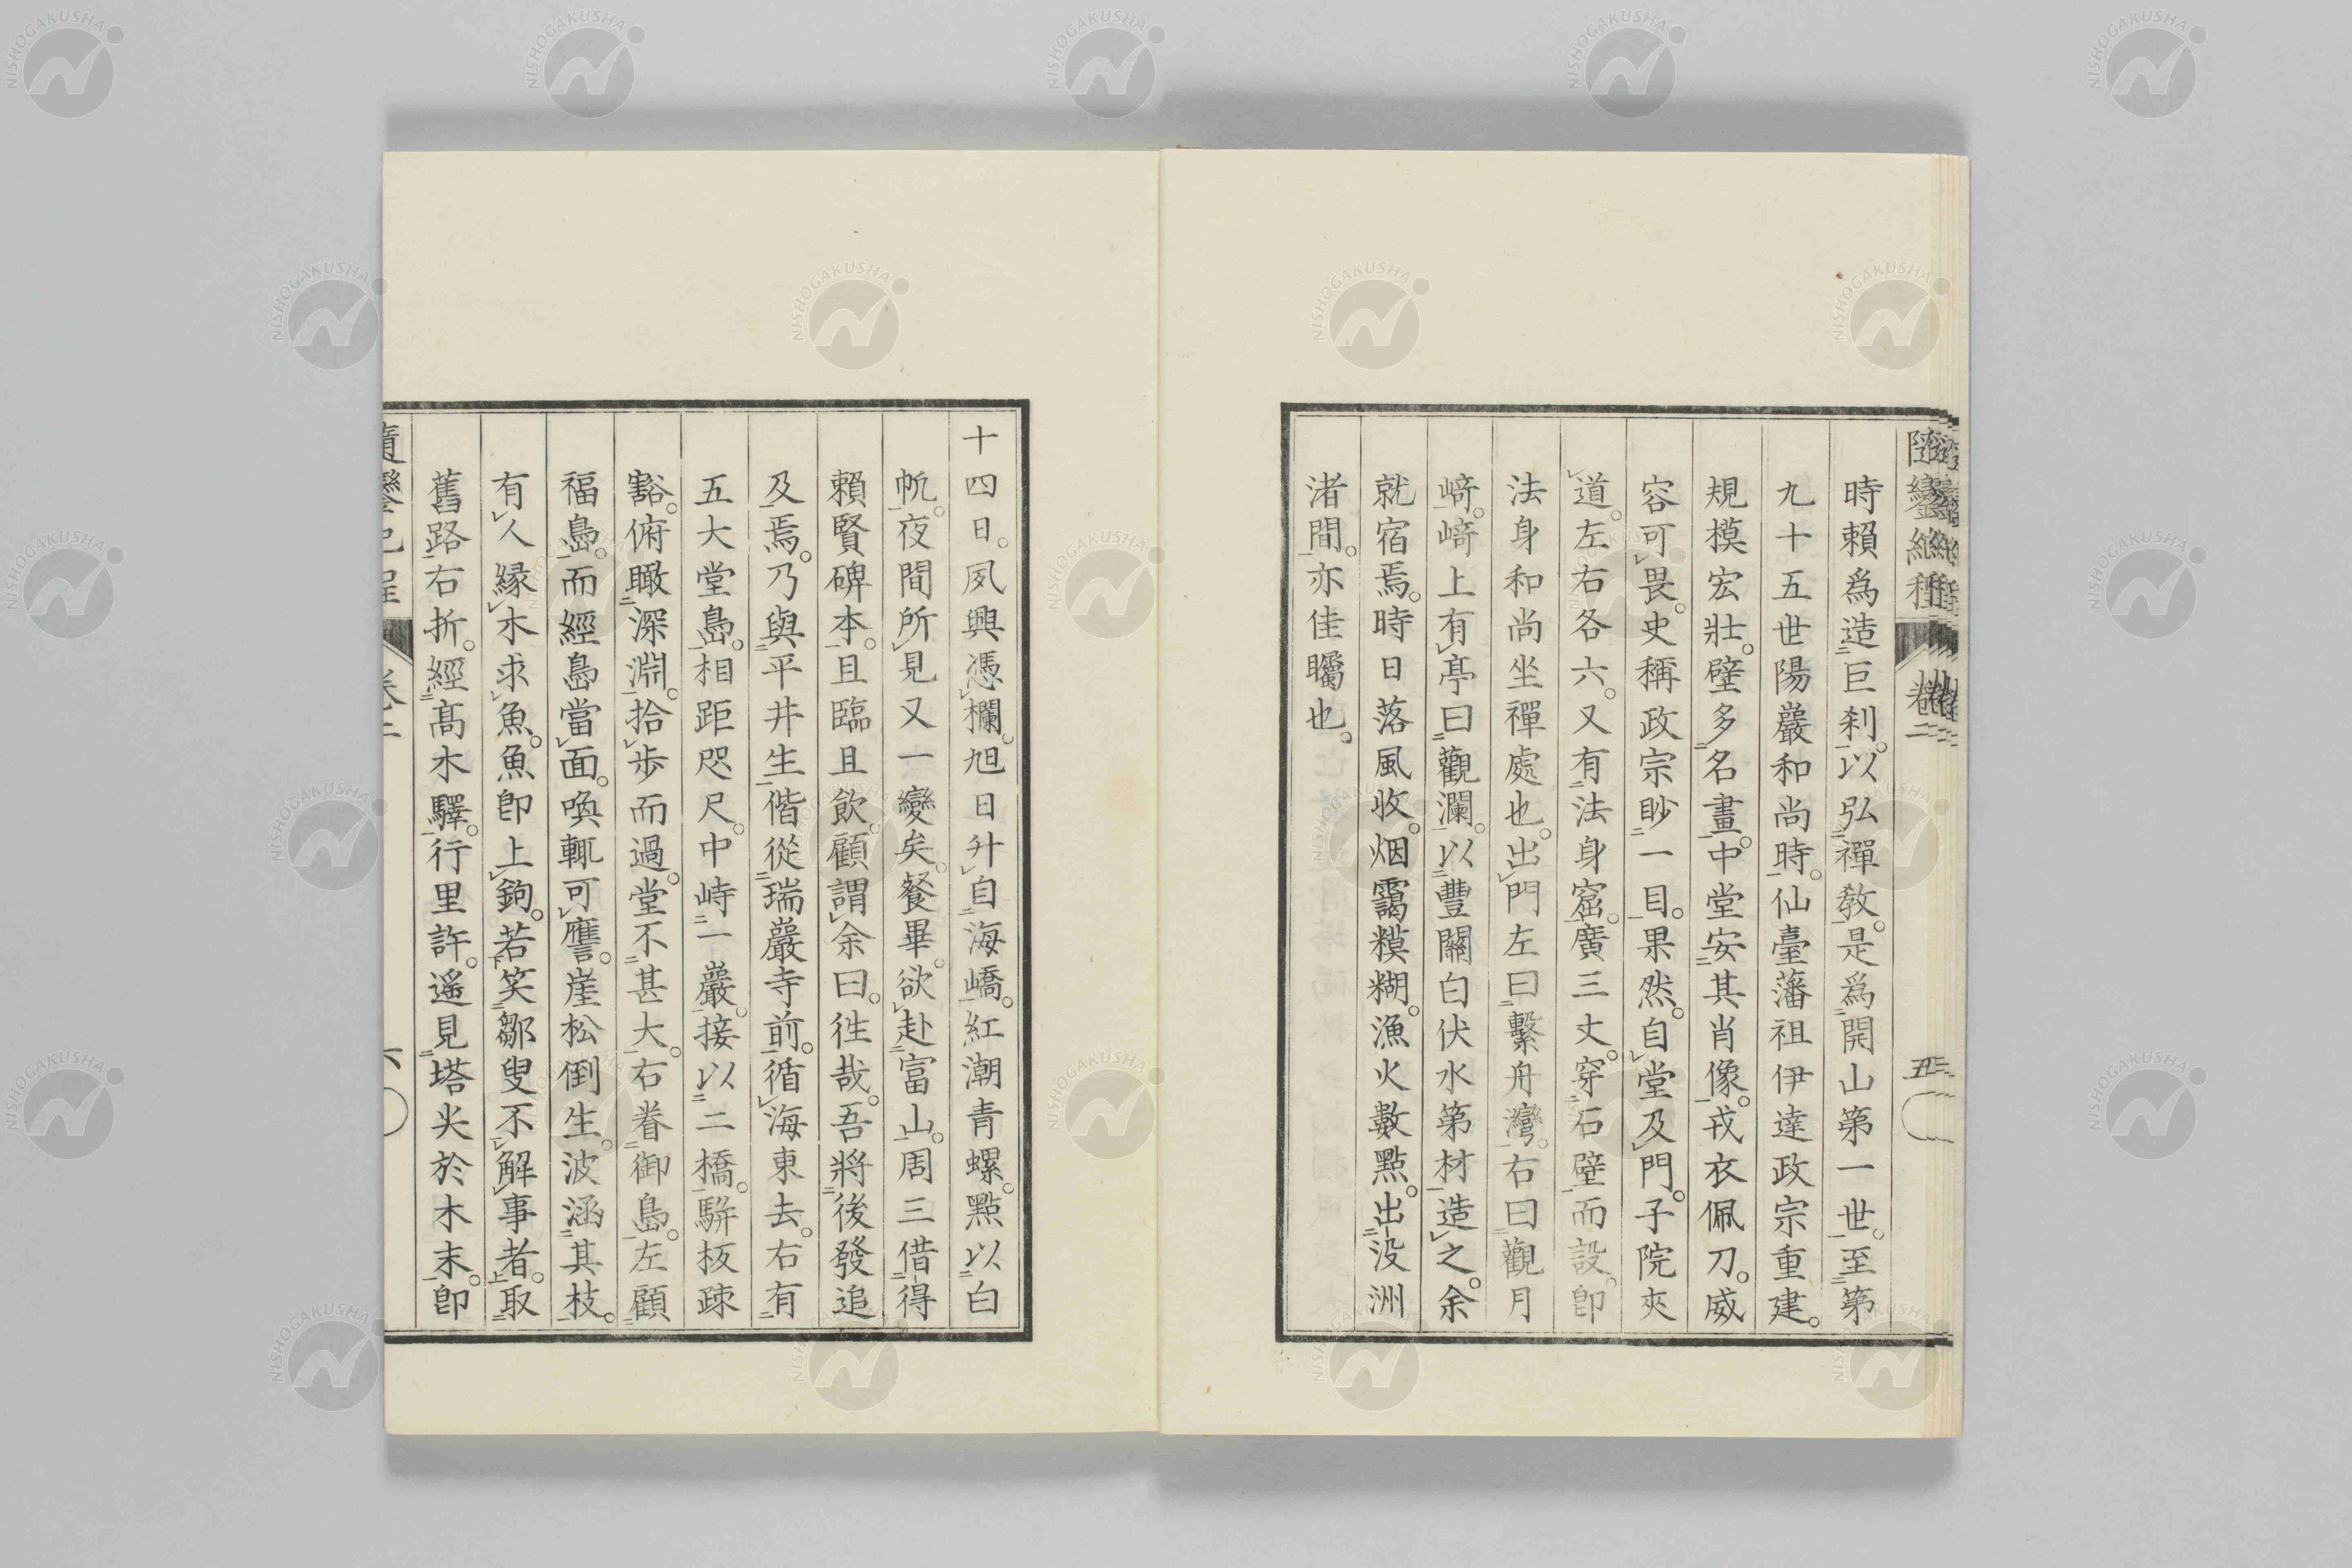 時賴爲造巨刹。以弘禪教。是爲開山第一世。至第
九十五世陽巖和尚時。仙臺藩祖伊達政宗重建。
規模宏壯。壁多名畫。中堂安其肖像。戎衣佩刀。威
容可畏。史稱政宗眇一目。果然。自堂及門。子院夾
道。左右各六。又有法身窟。廣三丈。穿石壁而設。卽
法身和尚坐禪處也。出門左曰繫舟灣。右曰觀月
﨑。﨑上有亭曰觀瀾。以豐關白伏水第材造之。余
就宿焉。時日落風收。烟靄糢糊。漁火數點。出沒洲
渚間。亦佳矚也。
十四日。夙興憑欄。旭日升自海嶠。紅潮青螺。點以白
帆。夜間所見又一變矣。餐畢。欲赴富山。周三借得
賴賢碑本。且臨且飲。顧謂余曰。徃哉。吾將後發追
及焉。乃與平井生偕從瑞巖寺前。循海東去。右有
五大堂島。相距咫尺。中峙一巖。接以二橋。駢板疎
豁。俯瞰深淵。拾步而過。堂不甚大。右眷御島。左顧
福島。而經島當面。喚輒可譍。崖松倒生。波涵其枝。
有人緣木求魚。魚卽上鉤。若笑鄒叟不解事者。取
舊路右折。經髙木驛。行里許。遙見塔尖於木末。卽
卷二
五
NISHOGAKUSHA